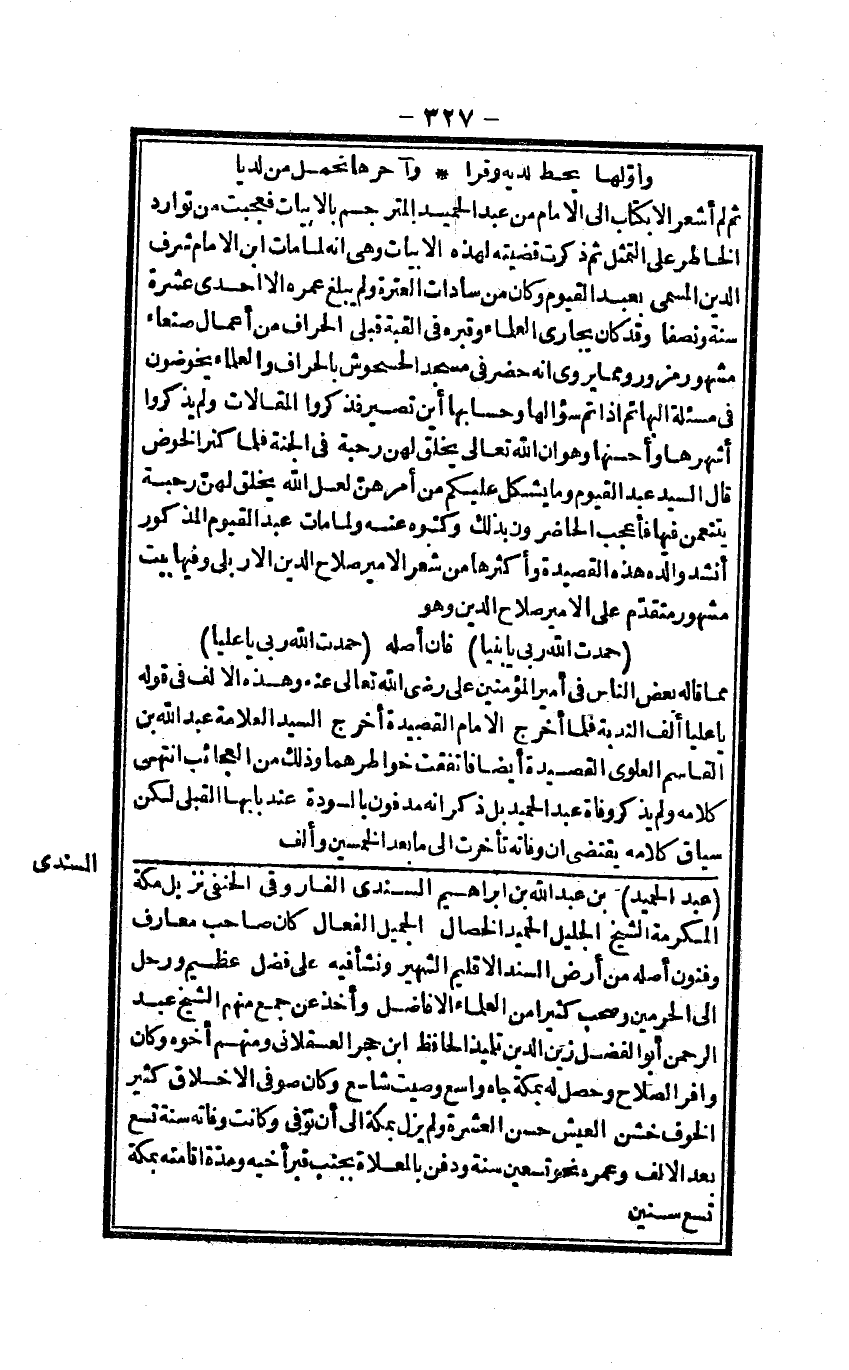 - ٣٢٧ -
وأولها يحط لديه وقرا * وآخرها تحمل من لديا
ثم لم أشعر الا بكتاب الى الامام من عبد الحميد المترجم بالابيات فعجبت من توارد
الخاطر على التمثل ثم ذكرت قضيته لهذه الابيات وهى انه لما مات ابن الامام شرف
الدين المسمى بعبد القيوم وكان من سادات العترة ولم يبلغ عمره الا احدى عشرة
سنة ونصفا وقد كان يجارى العلماء وقبره فى القبة قبلى الحراف من أعمال صنعاء
مشهور مزور ومما يروى انه حضر فى مسجد الحسحوش بالحراف والعلماء يخوضون
فى مسئلة البهائم اذا تم سؤالها وحسابها أين تصير فذكروا المقالات ولم يذكروا
أشهرها وأحسنها وهو ان الله تعالى يخلق لهن رحبة فى الجنة فلما كثر الخوض
قال السيد عبد القيوم وما يشكل عليكم من أمرهن لعل الله يخلق لهن رحبة
يتنعمن فيها فأعجب الحاضرون بذلك وكتبوه عنه ولما مات عبد القيوم المذكور
أنشد والده هذه القصيدة وأكثرها من شعر الامير صلاح الدين الاربلى وفيها بيت
مشهور متقدم على الامير صلاح الدين وهو
(حمدت الله ربى يا بنيا) فان أصله (حمدت الله ربى يا عليا)
مما قاله بعض الناس فى أمير المؤمنين على رضى الله تعالى عنه وهذه الالف فى قوله
يا عليا ألف الندبة فلما أخرج الامام القصيدة أخرج السيد العلامة عبد الله بن
القاسم العلوى القصيدة أيضا فاتفقت خواطرهما وذلك من العجائب انتهى
كلامه ولم يذكر وفاة عبد الحميد بل ذكر انه مدفون بالسودة عند بابها القبلى لكن
سياق كلامه يقتضى ان وفاته تأخرت الى ما بعد الخمسين وألف
السندى
(عبد الحميد) بن عبد الله بن ابراهيم السندى الفاروقى الحنفى نزيل مكة
المكرمة الشيخ الجليل الحميد الخصال الجميل الفعال كان صاحب معارف
وفنون أصله من أرض السند الاقليم الشهير ونشأ فيه على فضل عظيم ورحل
الى الحرمين وصحب كثيرا من العلماء الافاضل وأخذ عن جمع منهم الشيخ عبد
الرحمن أبو الفضل زين الدين تلميذ الحافظ ابن حجر العسقلانى ومنهم أخوه وكان
وافر الصلاح وحصل له بمكة جاه واسع وصيت شاسع وكان صوفى الاخلاق كثير
الخوف خشن العيش حسن العشرة ولم يزل بمكة الى أن توفى وكانت وفاته سنة تسع
بعد الالف وعمره نحو تسعين سنة ودفن بالمعلاة بجنب قبر أخيه ومدة اقامته بمكة
تسع سنين